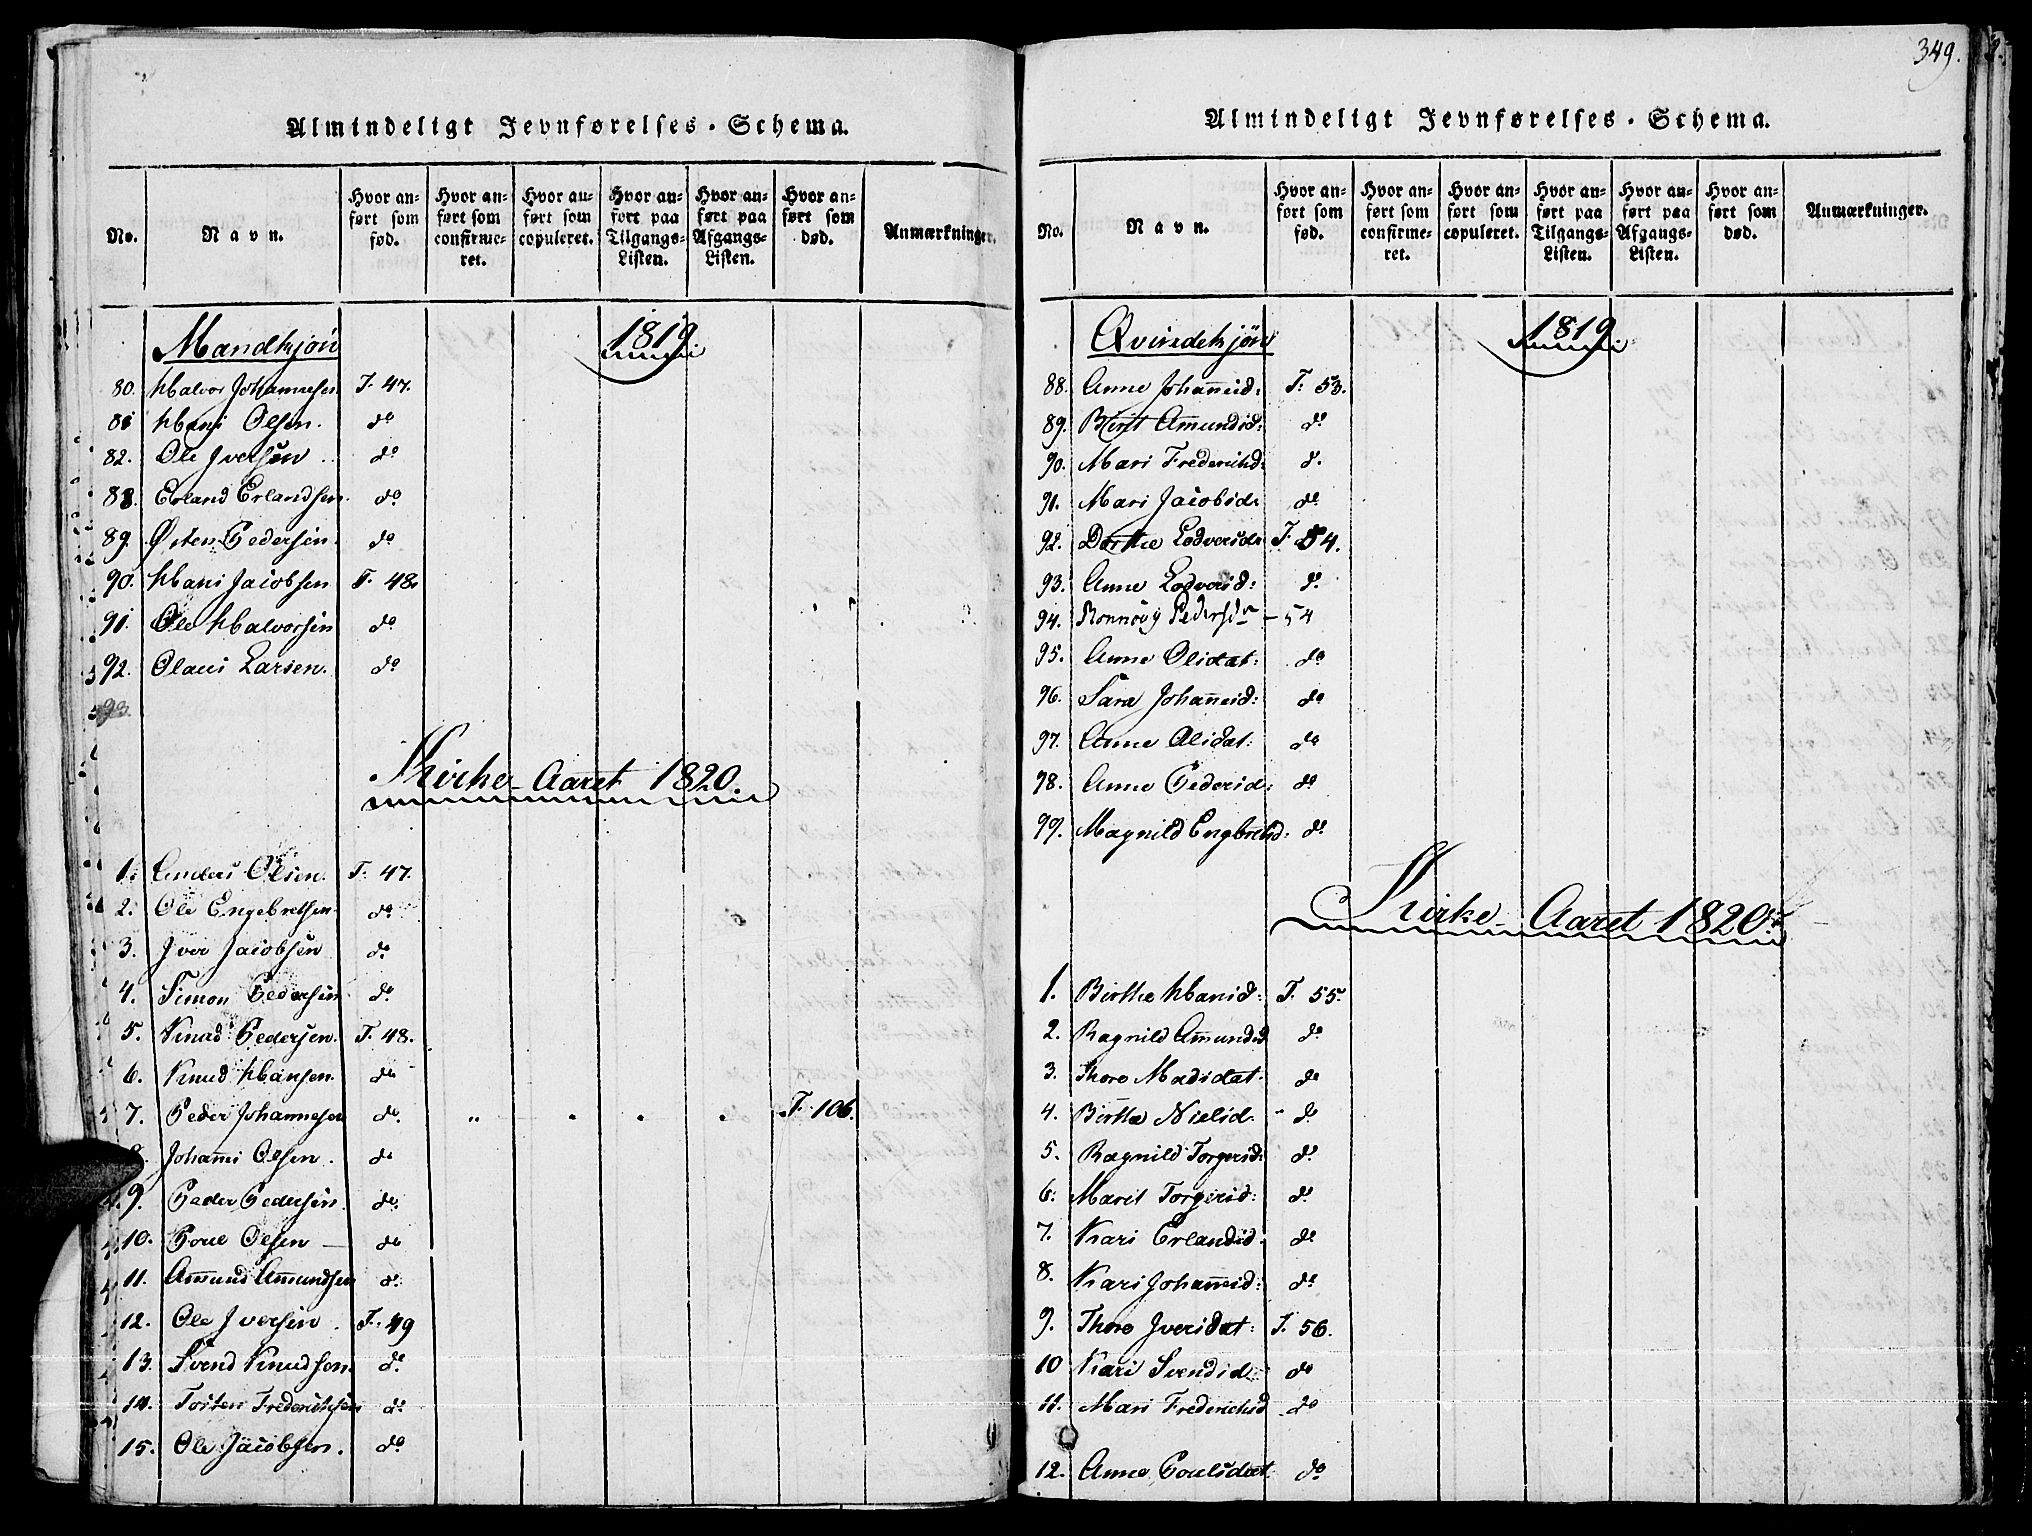 Almindeligt Jevnførelses-Schema.
No.
Navn.
Hvor anført som fød.
Hvor anført som confirmeret.
Hvor anført som copuleret.
Hvor anført paa Tilgangs-Listen.
Hvor anført paa Afgangs-Listen.
Hvor anført som død.
Anmærkninger.
Mandkjön 1819
80. Halvor Johannesen F. 47.
81 Hans Olsen. do
82. Ole Iversen do
88. Erland Erlandsen do
89. Østen Pedersen. do
90. Hans Jacobsen F. 48.
91. Ole Halvorsen do
92. Olaus Larsen. do
93.
Kirke-Aaret 1820.
1. Anders Olsen. F. 47.
2. Ole Engebretsen do
3. Iver Jacobsen do
4. Simon Pedersen do
5. Knud Pedersen. F. 48.
6. Knud Hansen. do
7. Peder Johannesen do. " . . . F. 106.
8. Johannes Olsen. do
9. Peder Pedersen. do
10. Poul Olsen do
11. Amund Amundsen do
12. Ole Iversen. F. 49
13. Svend Knudsen. do
14. Torsten Frederichsen do
15. Ole Jacobsen. do
349.
Almindeligt Jevnførelses-Schema.
No.
Navn.
Hvor anført som fød.
Hvor anført som confirmeret.
Hvor anført som copuleret.
Hvor anført paa Tilgangs-Listen.
Hvor anført paa Afgangs-Listen.
Hvor anført som død.
Anmærkninger.
Qvindekjön 1819
88. Anne Johan̄esd: F: 53.
89. Berit Amundsd: do
90. Mari Frederichsd: d.
91. Mari Jacobsd: do
92. Dorthe Lodversd: F. 54.
93. Anne Lodversd: do
94. Ronnöv Pedersdr - 54
95. Anne Olsdat: do
96. Sara Johan̄esd: do
97. Anne Olsdat: do
98. Anne Pedersd: do
99. Magnild Engbretsd: do
Kirke-Aaret 1820.
1. Birthe Hansd: F. 55.
2. Ragnild Amundsd do
3. Thore Madsdat. do
4. Birthe Nielsd. do
5. Ragnild Torgersd: do
6. Marit Torgersd: do
7. Kari Erlandsd: do
8. Kari Johan̄esd: do
9. Thore Iversdat: F. 56.
10 Kari Svendsd: do
11. Mari Frederichsd do
12. Anne Poulsdat. do